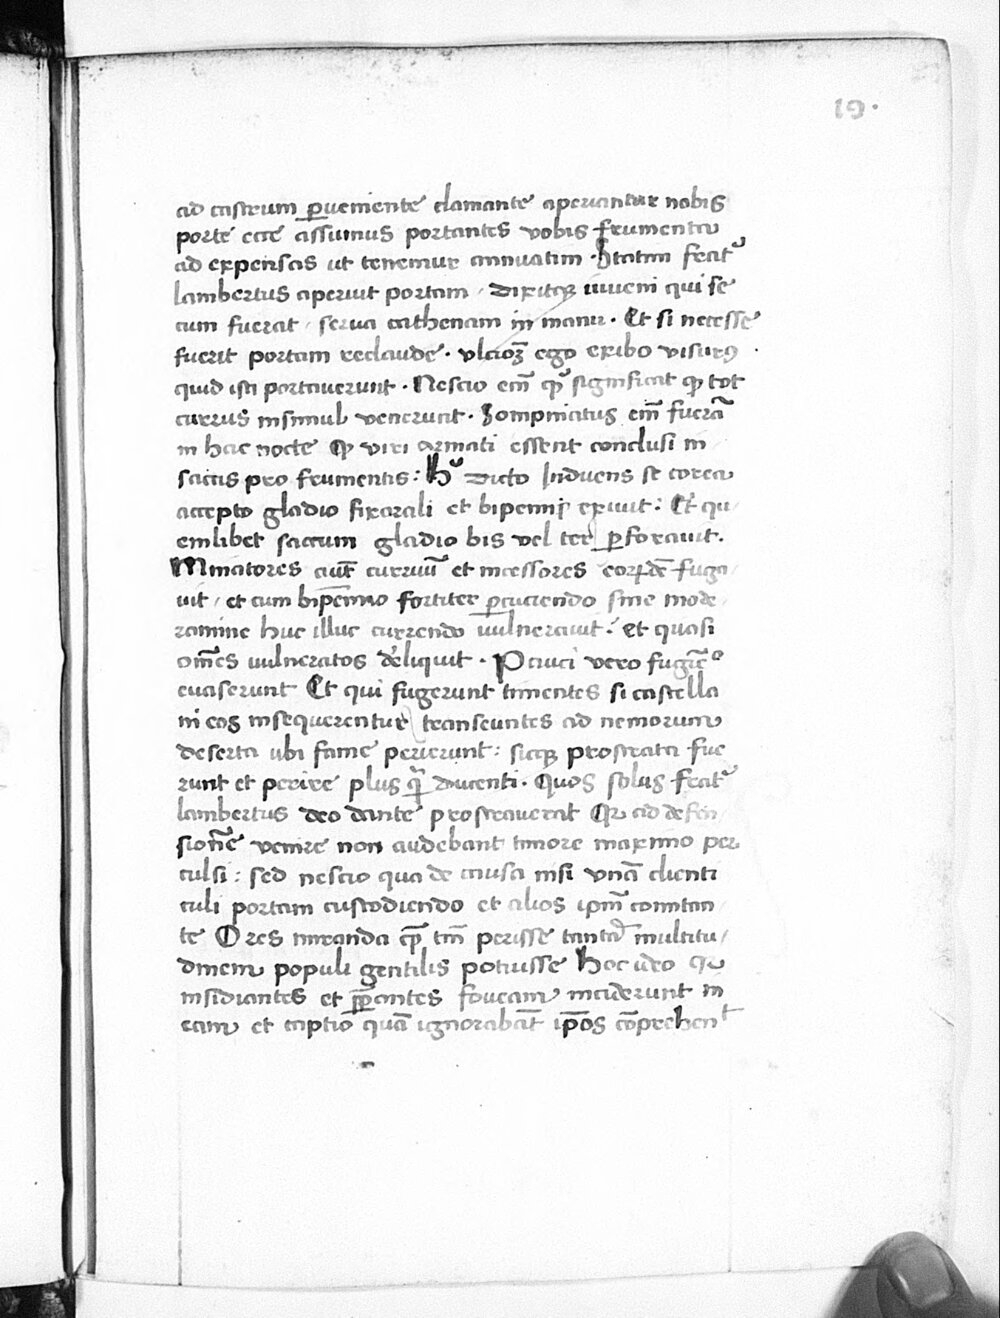 19.
ad castrum ꝑueniente clamante aperiantur nobis
porte ecce assumus portantes vobis frumenta
ad expensas ut tenemur annuatim. Statim frat᷑
lambertus aperiut portam / dixitqꝫ iuueni qui se
cum fuerat / serua cathenam in manu. Et si necesse
fuerit portam reclaude. ego exibo visurꝰ.
quid isti portauerunt. Nescio em̄ significat ꝙ tot
currus insimul venerunt. Sompniatus em̄ fuerā
in hac nocte ꝙ viri armati essent conclusi in
saccis pro frumentis: dicto Induens se corea
accepto gladio et bipenni exiuit: Et qu
emlibet saccum gladio bis vel ter ꝑforauit.
Minatores aut̄ curruū et incessores eorūdē fuga
uit / et cum bipennio fortiter ꝑcuciendo sine mode
ramine huc illuc currendo uulnerauit. et quasi
om̄es uulneratos deliquit. Pauci vero fugiēte
euaserunt Et qui fugerunt timentes si castella
ni eos insequerentur transeuntes ad nemorum
deserta ubi fame perierunt: sicqꝫ prostrati fue
runt et perire plus qᷓ ducenti. Quos solus frat᷑
lambertus deo dante prostrauerat Qui ad defen
sionē venire non audebant timore maximo per
culsi: sed nescio qua de causa nisi vnā clienti
culi portam custodiendo et alios ipm̄ comitan
te O res miranda tm̄ perisse tantā multitu/
dinem populi gentilis potuisse Hoc ideo qꝛ
insidiantes et foueam inciderunt in
eam et captio quā ignorabāt ip̄os cōprehent